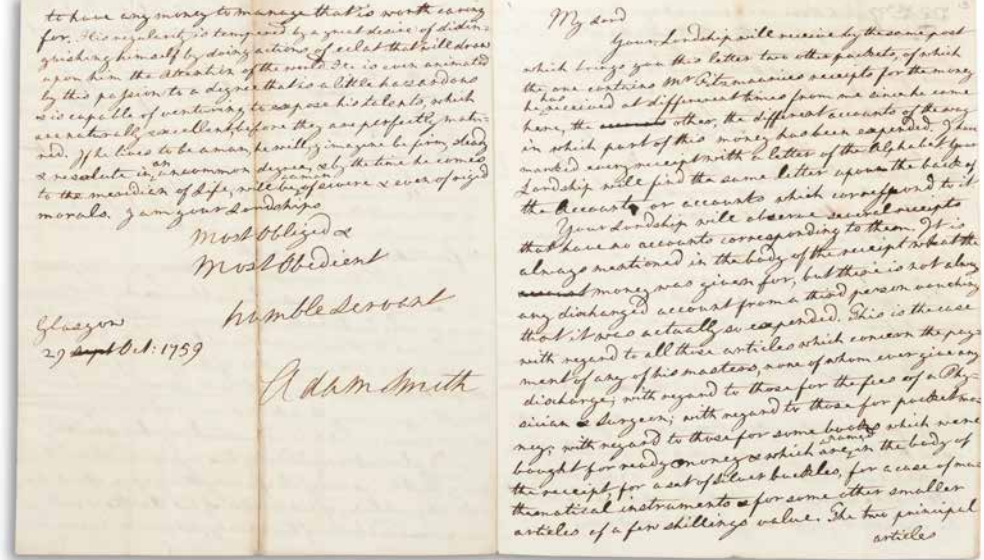 to have any money to manage that is worth caring
for. His regularity is tempered by a great desire of distin-
guishing himself by doing actions of eclat that will draw
upon him the attention of the world. He is even animated
by this passion to a degree that is a little hazardous
& is capable of venturing to expose his talents, which
are naturally excellent, before they are perfectly matu-
red. If he lives to be a man, he will, I imagine be firm, steady
& resolute in an uncommon degree, & by the time he comes
to the meridian of life, will be a man of severe & even of rigid
morals. I am your Lordships
Most Obliged &
Most Obedient
humble servant
Glasgow
29 Sept Oct: 1759
Adam Smith
My Lord
Your Lordship will receive by the same post
which brings you this letter two other packets, of which
the one contains Mr Fitzmaurices receipts for the money
he has received at different times from me since he came
here, the other, the different accounts of the way
in which part of this money has been expended. I have
marked every receipt with a letter of the Alphabet your
Lordship will find the same letter upon the back of
the Account or accounts which correspond to it
Your Lordship will observe several receipts
that have no accounts corresponding to them. It is
always mentioned in the body of the receipt what the
money was given for, but there is not always
any discharged account from a third person vouching
that it was actually so expended. This is the case
with regard to all those articles which concern the pay-
ment of any of his masters, none of whom ever give any
discharge; with regard to those for the fees of a Phy-
sician & Surgeon; with regard to those for pocket mo-
ney; with regard to those for some books which were
bought for ready money & which are named in the body of
the receipt, for a set of silver buckles, for a case of ma-
thematical instruments & for some other smaller
articles of a few shillings value. The two principal
articles